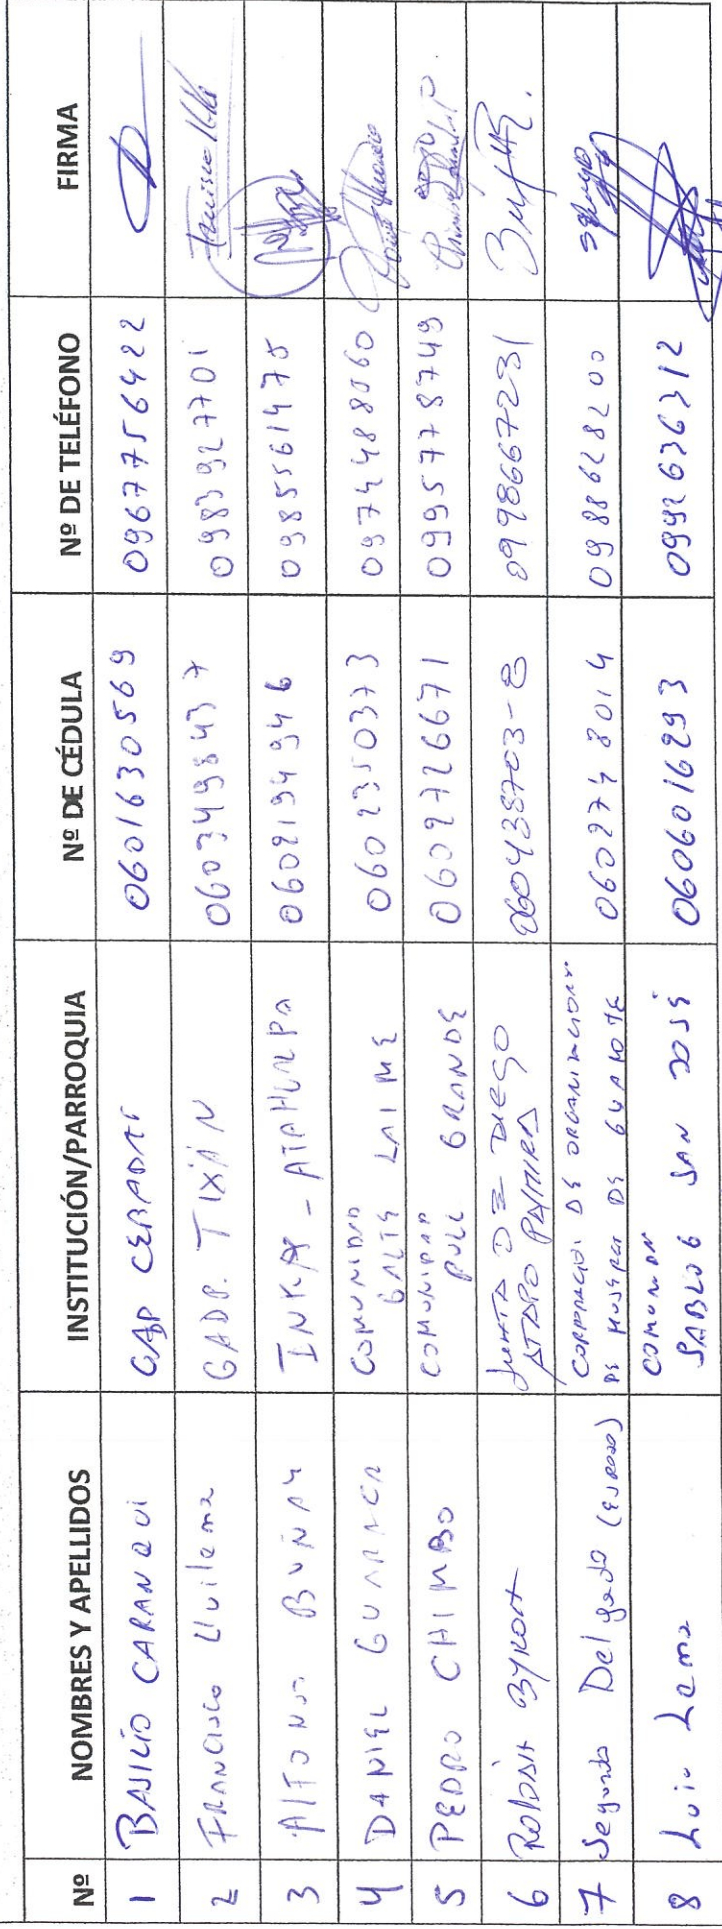 Nº NOMBRES Y APELLIDOS INSTITUCIÓN/PARROQUIA Nº DE CÉDULA Nº DE TELÉFONO FIRMA
1 BASILIO CARANQUI GAD CEBADAS 0601630569 0967756422
2 FRANCISCO Lluilema GADP. TIXÁN 0603498437 0983927701
3 AlFONSO BUÑAY INKA - ATAHUALPA 0602194946 0985561475
4 DANIEL GUARACA COMUNIDAD GALTE LAIME 0602350373 0974488060
5 PEDRO CHIMBO COMUNIDAD PULL GRANDE 0602726671 0995778749
6 ROLDÁN BYRON JUNTA DE RIEGO ATAPO PALMIRA 060438703-8 0998667231
7 Segundo Delgado CORPORACIÓN DE ORGANIZACIONES DE MUJERES DE GUAMOTE 0602748014 0988628200
8 Luis Lema COMUNIDAD SABLOG SAN JOSÉ 0606016293 0992636312